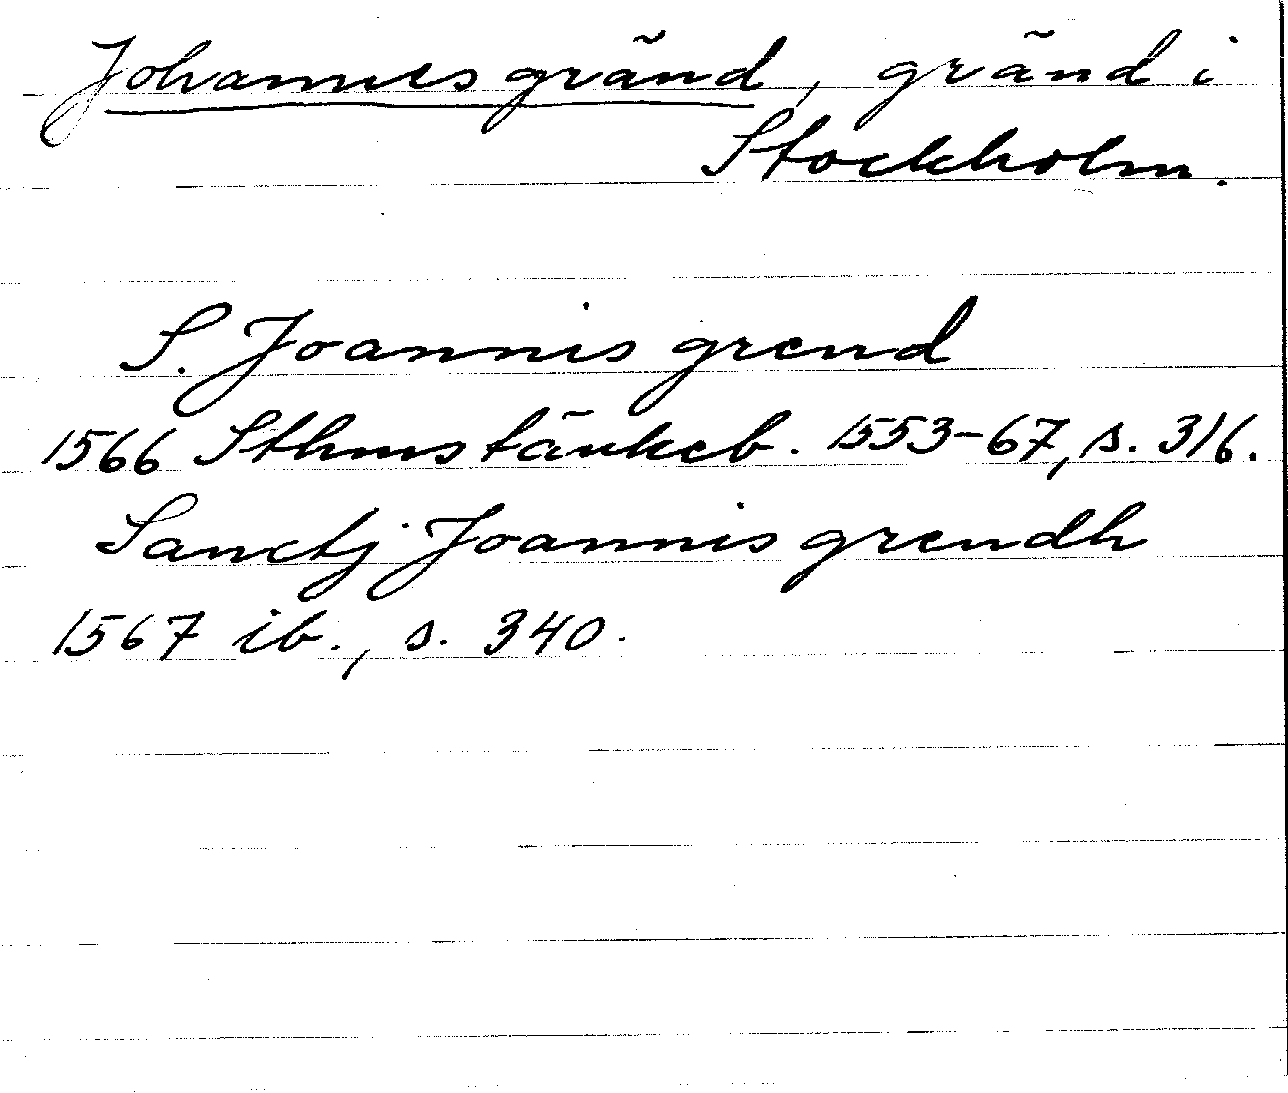 Johannes gränd, gränd i
Stockholm.
S. Joannis grend
1566 Sthms tänkeb. 1553-67, s. 316.
Sanctj Joannis grendh
1567 ib., s. 340.